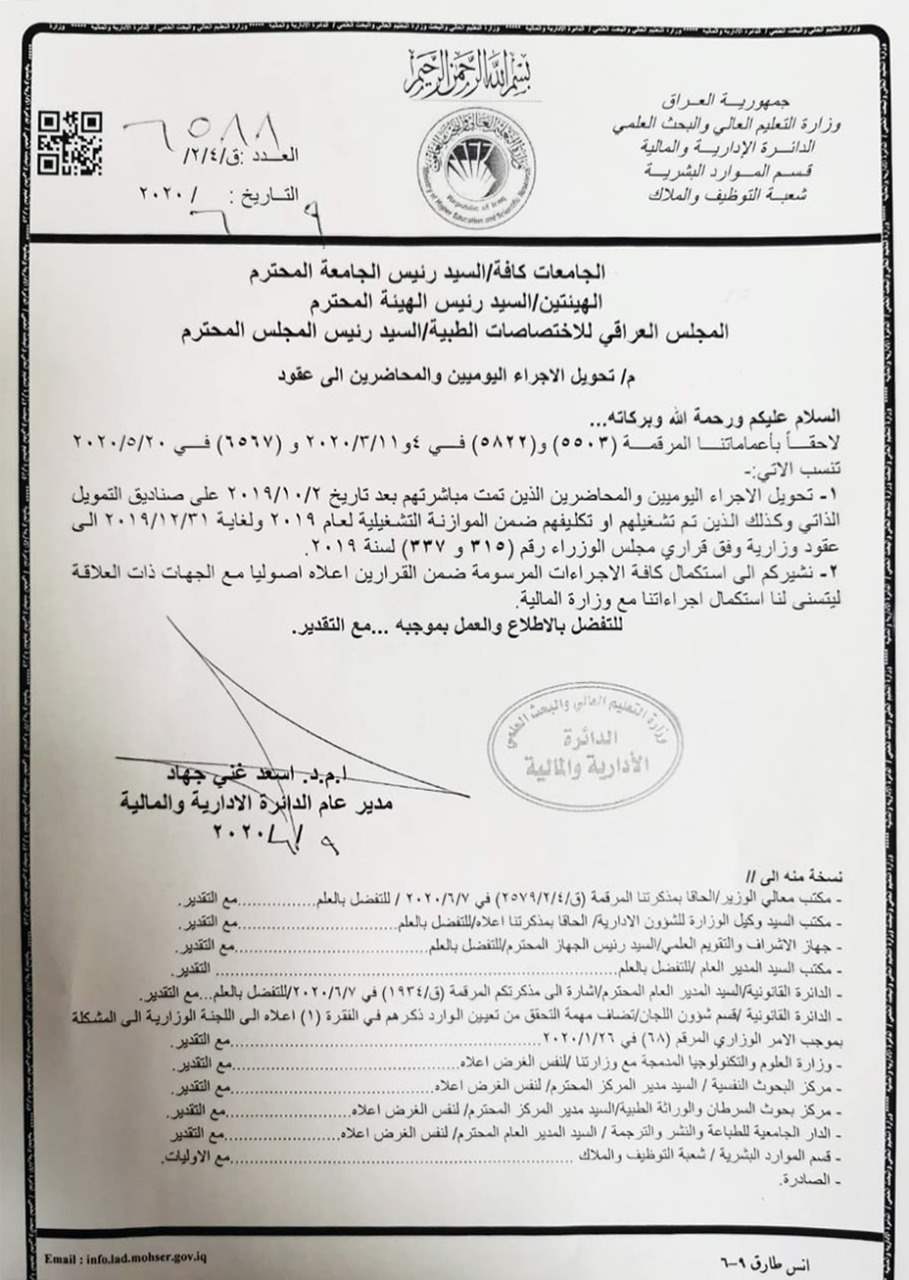 بسم الله الرحمن الرحيم
جمهورية العراق
وزارة التعليم العالي والبحث العلمي
الدائرة الإدارية والمالية
قسم الموارد البشرية
شعبة التوظيف والملاك
العدد :ق/٢/٤/ ٦٥٨٨
التاريخ : ٩ / ٦ / ٢٠٢٠
Ministry of Higher Education and Scientific Research
Republic of Iraq
الجامعات كافة/السيد رئيس الجامعة المحترم
الهيئتين/السيد رئيس الهيئة المحترم
المجلس العراقي للاختصاصات الطبية/السيد رئيس المجلس المحترم
م/ تحويل الاجراء اليوميين والمحاضرين الى عقود
السلام عليكم ورحمة الله وبركاته...
لاحقاً بأعماماتنا المرقمة (٥٥٠٣) و(٥٨٢٢) في ٤و٢٠٢٠/٣/١١ و (٦٥٦٧) في ٢٠٢٠/٥/٢٠
تنسب الاتي:-
١- تحويل الاجراء اليوميين والمحاضرين الذين تمت مباشرتهم بعد تاريخ ٢٠١٩/١٠/٢ على صناديق التمويل
الذاتي وكذلك الذين تم تشغيلهم او تكليفهم ضمن الموازنة التشغيلية لعام ٢٠١٩ ولغاية ٢٠١٩/١٢/٣١ الى
عقود وزارية وفق قراري مجلس الوزراء رقم (٣١٥ و ٣٣٧) لسنة ٢٠١٩.
٢- نشيركم الى استكمال كافة الاجراءات المرسومة ضمن القرارين اعلاه اصوليا مع الجهات ذات العلاقة
ليتسنى لنا استكمال اجراءاتنا مع وزارة المالية.
للتفضل بالاطلاع والعمل بموجبه ...مع التقدير.
وزارة التعليم العالي والبحث العلمي
الدائرة
الأدارية والمالية
ا.م.د. اسعد غني جهاد
مدير عام الدائرة الادارية والمالية
٩ / ٦ / ٢٠٢٠
نسخة منه الى //
- مكتب معالي الوزير/الحاقا بمذكرتنا المرقمة (ق/٢٥٧٩/٢/٤) في ٢٠٢٠/٦/٧ / للتفضل بالعلم................مع التقدير.
- مكتب السيد وكيل الوزارة للشؤون الادارية/ الحاقا بمذكرتنا اعلاه/للتفضل بالعلم................مع التقدير.
- جهاز الاشراف والتقويم العلمي/السيد رئيس الجهاز المحترم/للتفضل بالعلم................مع التقدير.
- مكتب السيد المدير العام /للتفضل بالعلم................ التقدير.
- الدائرة القانونية/السيد المدير العام المحترم/اشارة الى مذكرتكم المرقمة (ق/١٩٣٤) في ٢٠٢٠/٦/٧/للتفضل بالعلم...مع التقدير.
- الدائرة القانونية /قسم شؤون اللجان/تضاف مهمة التحقق من تعيين الوارد ذكرهم في الفقرة (١) اعلاه الى اللجنة الوزارية الى المشكلة
بموجب الامر الوزاري المرقم (٦٨) في ٢٠٢٠/١/٢٦................مع التقدير.
- وزارة العلوم والتكنولوجيا المدمجة مع وزارتنا /لنفس الغرض اعلاه................مع التقدير.
- مركز البحوث النفسية / السيد مدير المركز المحترم/ لنفس الغرض اعلاه................مع التقدير.
- مركز بحوث السرطان والوراثة الطبية/السيد مدير المركز المحترم/ لنفس الغرض اعلاه................مع التقدير.
- الدار الجامعية للطباعة والنشر والترجمة / السيد المدير العام المحترم/ لنفس الغرض اعلاه................مع التقدير
- قسم الموارد البشرية / شعبة التوظيف والملاك ................مع الاوليات.
- الصادرة.
Email : info.lad.mohser.gov.iq
انس طارق ٩-٦